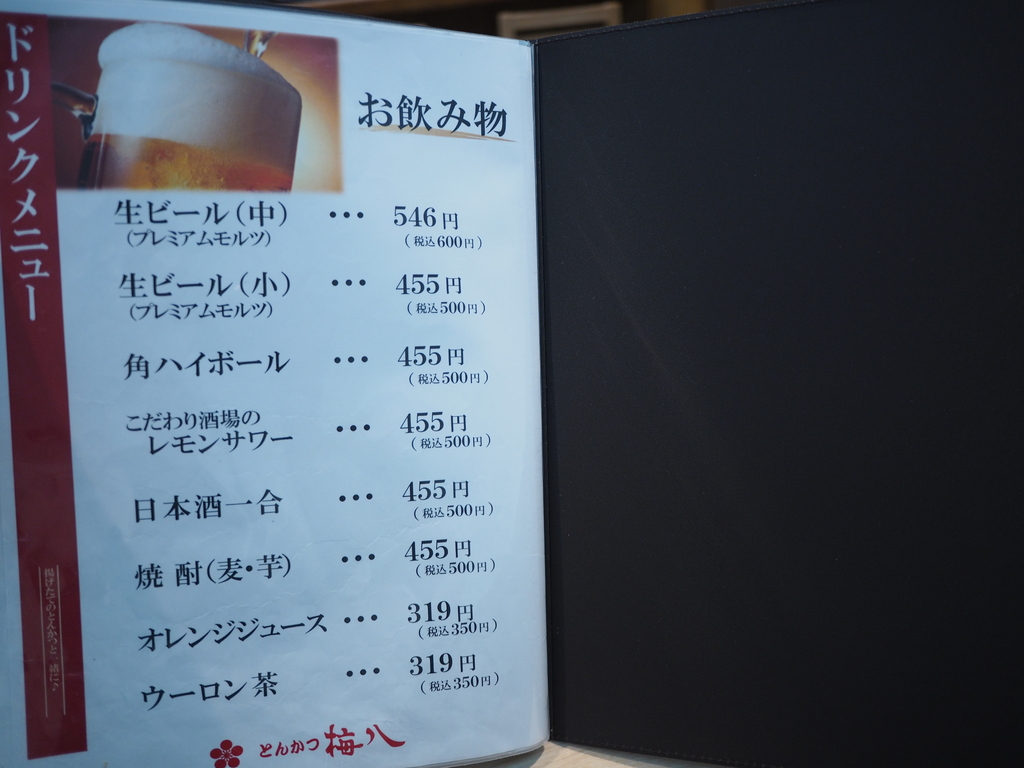 ドリンクメニュー
お飲み物
生ビール(中) ・・・ 546円
(プレミアムモルツ) (税込600円)
生ビール(小) ・・・ 455円
(プレミアムモルツ) (税込500円)
角ハイボール ・・・ 455円
(税込500円)
こだわり酒場の
レモンサワー ・・・ 455円
(税込500円)
日本酒一合 ・・・ 455円
(税込500円)
焼酎(麦・芋) ・・・ 455円
(税込500円)
オレンジジュース ・・・ 319円
(税込350円)
ウーロン茶 ・・・ 319円
(税込350円)
揚げたてのとんかつと一緒に♪
とんかつ 梅八